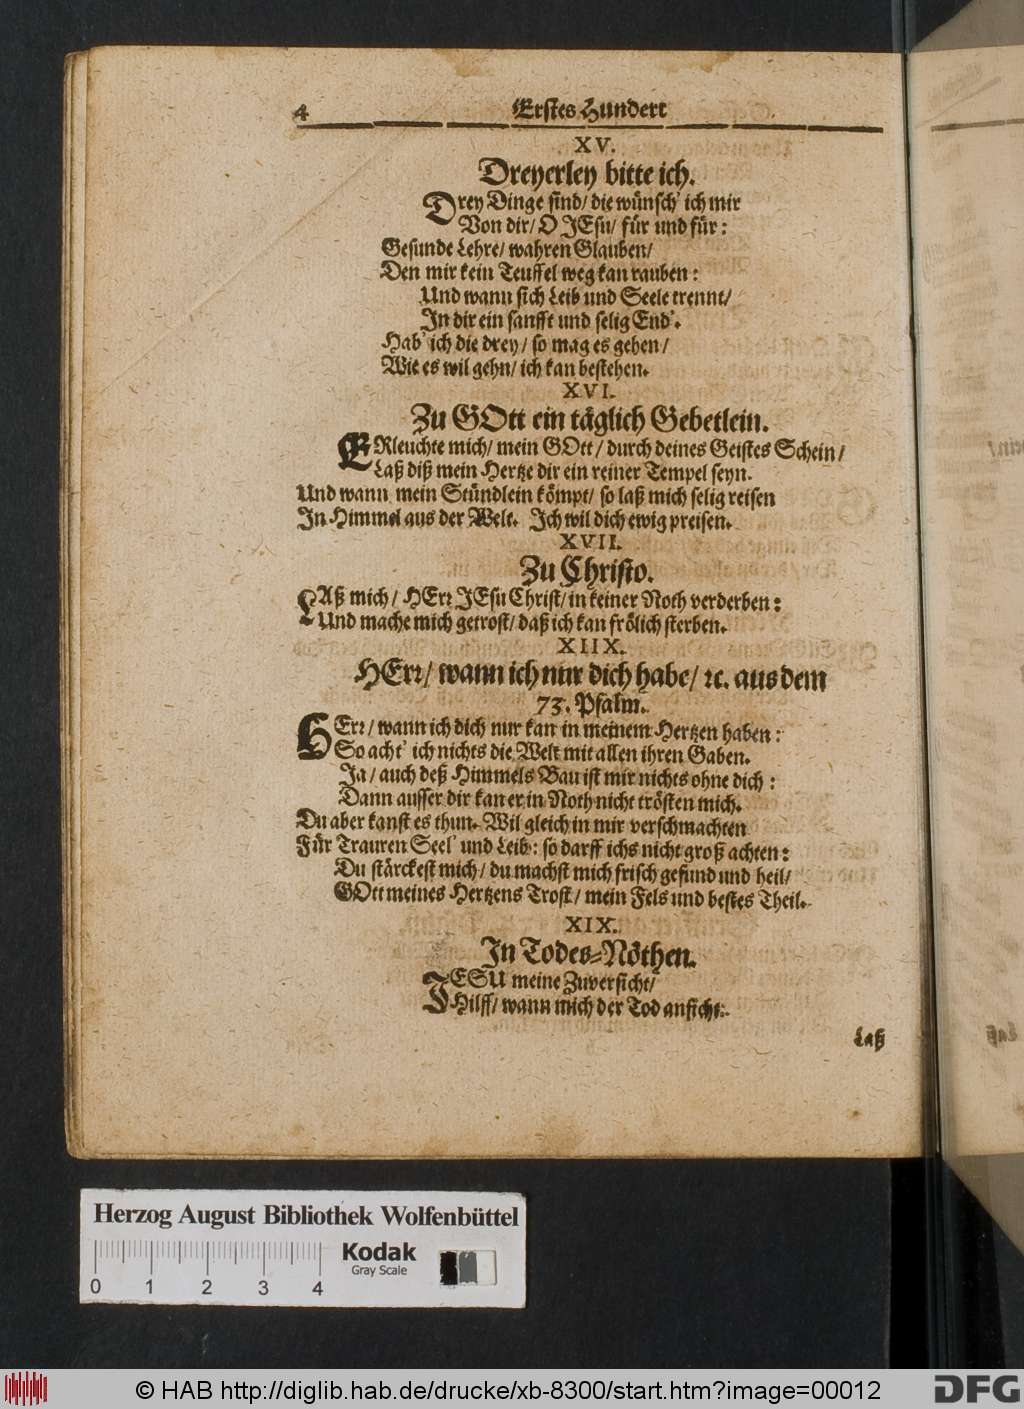 4 Erstes Hundert
XV.
Dreyerley bitte ich.
Drey Dinge sind/ die wünsch' ich mir
Von dir/ O JEsu/ für und für:
Gesunde Lehre/ wahren Glauben/
Den mir kein Teuffel weg kan rauben:
Und wann sich Leib und Seele trennt/
In dir ein sanfft und selig End'.
Hab' ich die drey/ so mag es gehen/
Wie es wil gehn/ ich kan bestehen.
XVI.
Zu GOtt ein täglich Gebetlein.
ERleuchte mich/ mein GOtt/ durch deines Geistes Schein/
Laß diß mein Hertze dir ein reiner Tempel seyn.
Und wann mein Stündlein kömpt/ so laß mich selig reisen
In Himmel aus der Welt. Ich wil dich ewig preisen.
XVII.
Zu Christo.
LAß mich/ HErr JEsu Christ/ in keiner Noth verderben:
Und mache mich getrost/ daß ich kan frölich sterben.
XIIX.
HErr/ wann ich nur dich habe/ ꝛc. aus dem
73. Psalm.
HErr/ wann ich dich nur kan in meinem Hertzen haben:
So acht' ich nichts die Welt mit allen ihren Gaben.
Ja/ auch deß Himmels Bau ist mir nichts ohne dich:
Dann ausser dir kan er in Noth nicht trösten mich.
Du aber kanst es thun. Wil gleich in mir verschmachten
Für Trauren Seel' und Leib: so darff ichs nicht groß achten:
Du stärckest mich/ du machst mich frisch gesund und heil/
GOtt meines Hertzens Trost/ mein Fels und bestes Theil.
XIX.
In Todes-Nöthen.
JESU meine Zuversicht/
Hilff/ wann mich der Tod anficht:
Laß
Herzog August Bibliothek Wolfenbüttel
Kodak
Gray Scale
0 1 2 3 4
© HAB http://diglib.hab.de/drucke/xb-8300/start.htm?image=00012
DFG